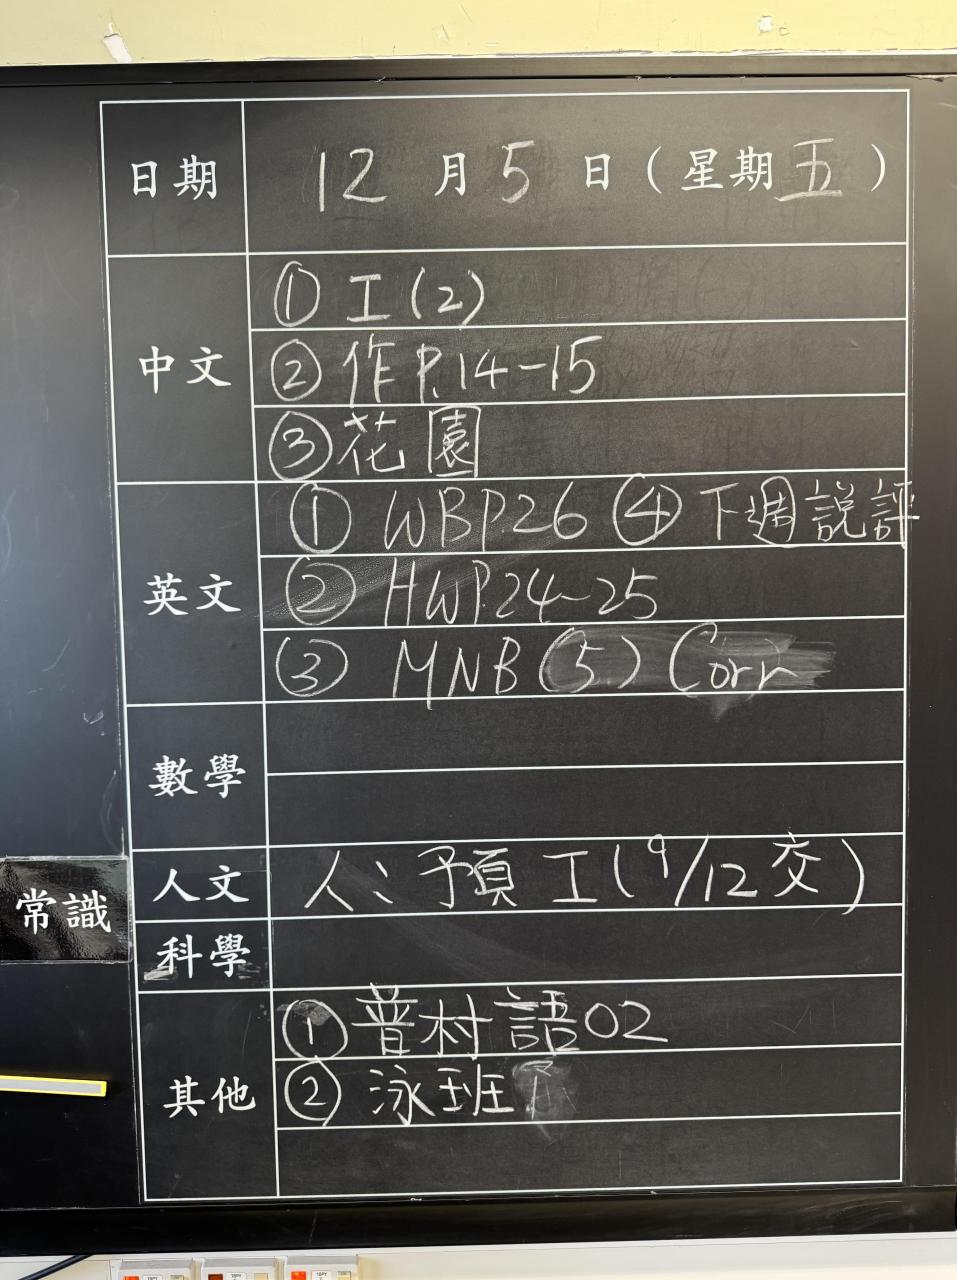 日期 12月5日(星期五)
中文 ① 工(2)
② 作P.14-15
③ 花園
英文 ① WBP.26 ④ 下週說評
② HWP.24-25
③ MNB(5) Corr
數學
人文 人:預工(9/12交)
常識
科學
其他 ① 普村語02
② 泳班